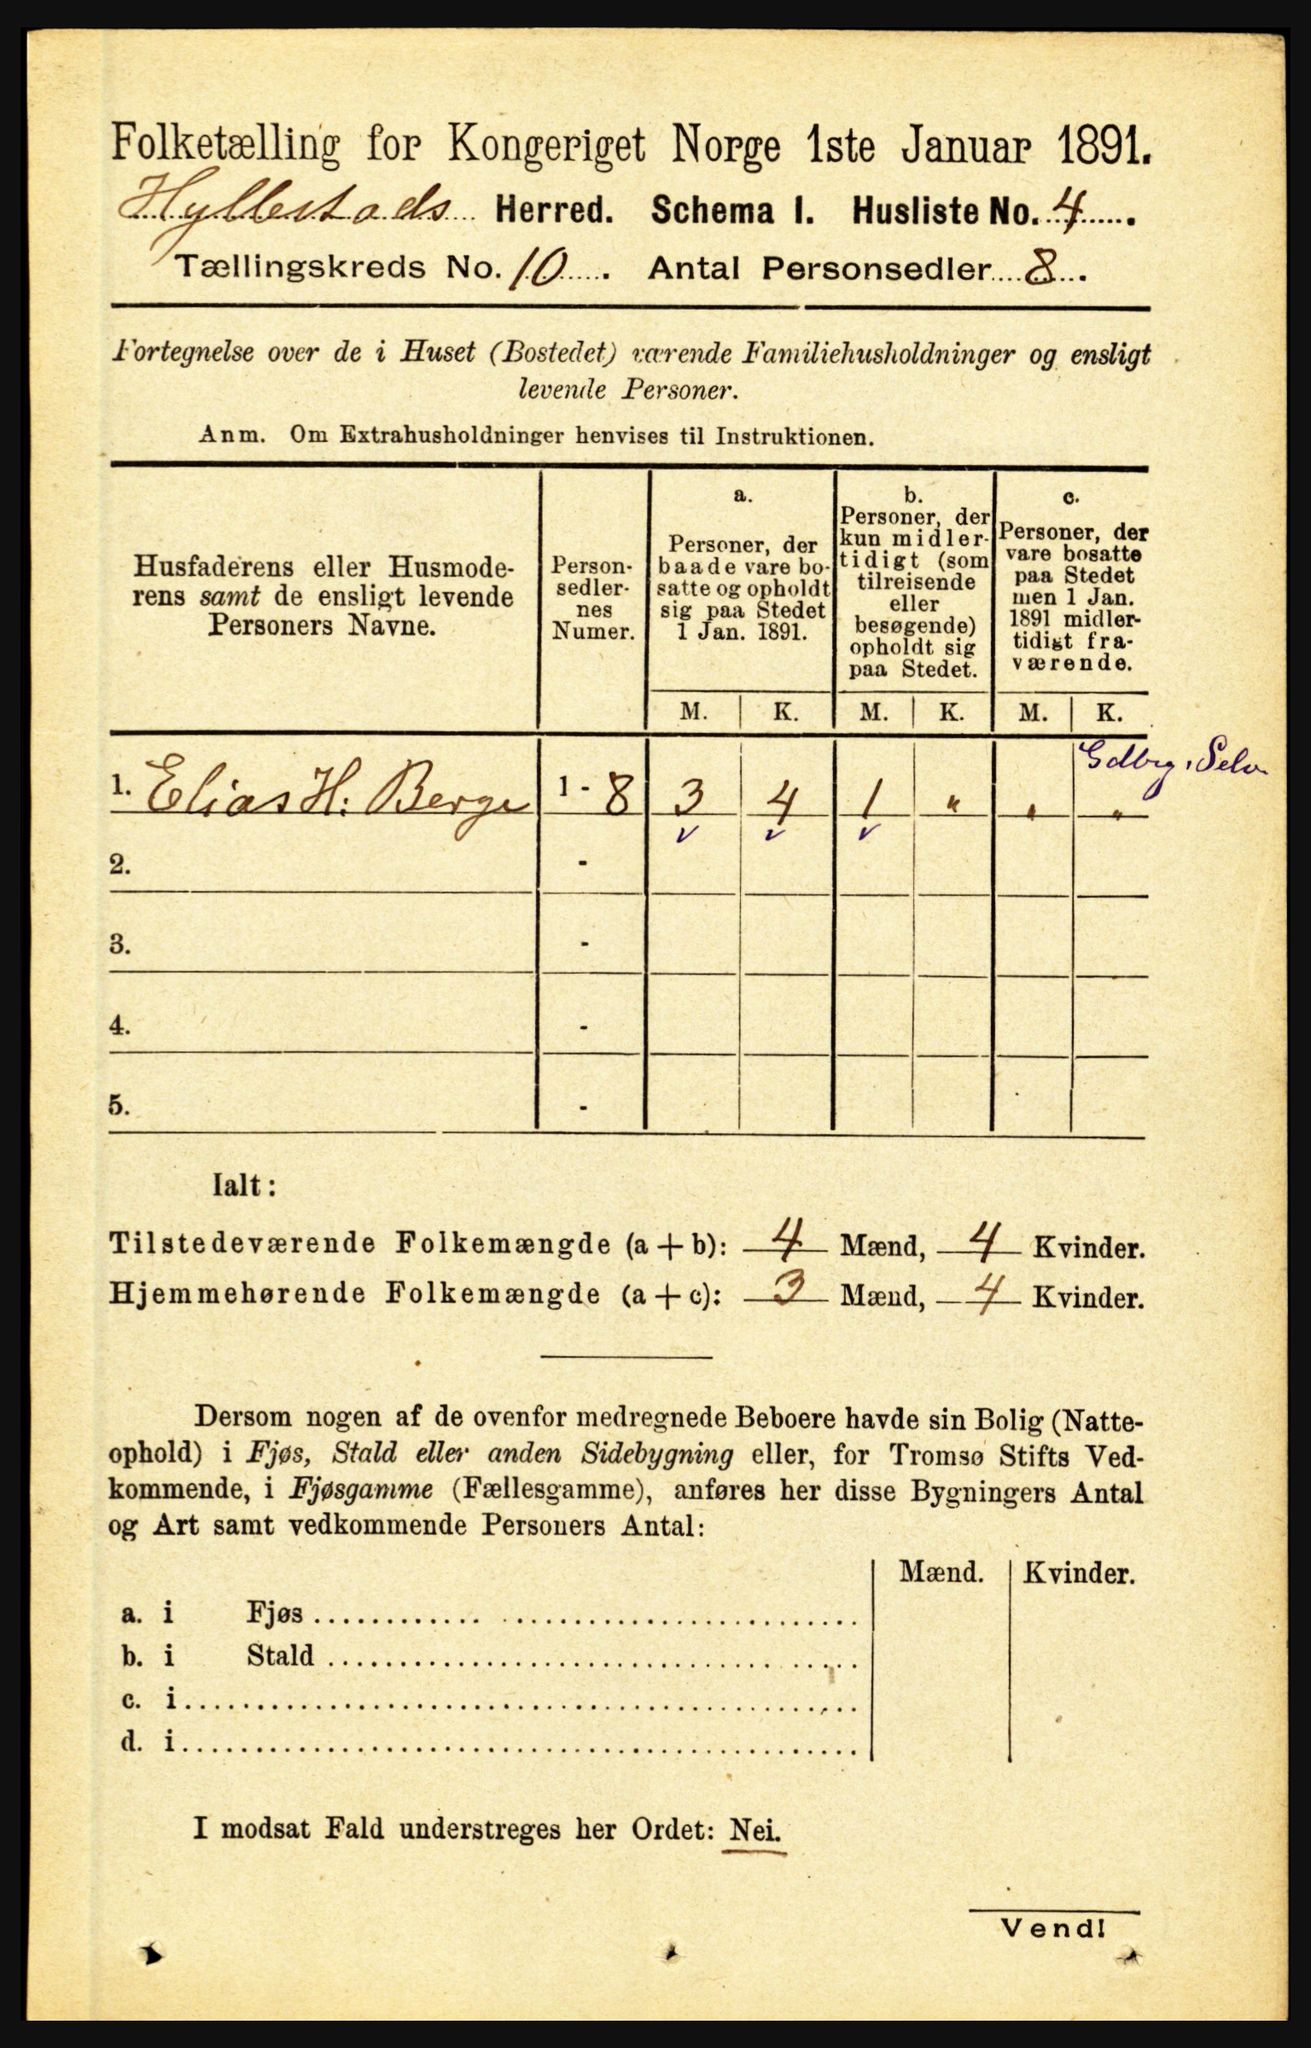 Folketælling for Kongeriget Norge 1ste Januar 1891.
Hyllestads Herred. Schema I. Husliste No. 4.
Tællingskreds No. 10. Antal Personsedler 8.
Fortegnelse over de i Huset (Bostedet) værende Familiehusholdninger og ensligt
levende Personer.
Anm. Om Extrahusholdninger henvises til Instruktionen.
Husfaderens eller Husmode-
rens samt de ensligt levende
Personers Navne.
Person-
sedler-
nes
Numer.
a.
Personer, der
baade vare bo-
satte og opholdt
sig paa Stedet
1 Jan. 1891.
b.
Personer, der
kun midler-
tidigt (som
tilreisende
eller
besøgende)
opholdt sig
paa Stedet.
c.
Personer, der
vare bosatte
paa Stedet
men 1 Jan.
1891 midler-
tidigt fra-
værende.
M. K. M. K. M. K.
1. Elias H. Berge 1 - 8 3 4 1 " " "
2. -
3. -
4. -
5. -
Ialt:
Tilstedeværende Folkemængde (a + b): 4 Mænd, 4 Kvinder.
Hjemmehørende Folkemængde (a + c): 3 Mænd, 4 Kvinder.
Dersom nogen af de ovenfor medregnede Beboere havde sin Bolig (Natte-
ophold) i Fjøs, Stald eller anden Sidebygning eller, for Tromsø Stifts Ved-
kommende, i Fjøsgamme (Fællesgamme), anføres her disse Bygningers Antal
og Art samt vedkommende Personers Antal:
Mænd. Kvinder.
a. i Fjøs
b. i Stald
c. i
d. i
I modsat Fald understreges her Ordet: Nei.
Vend!